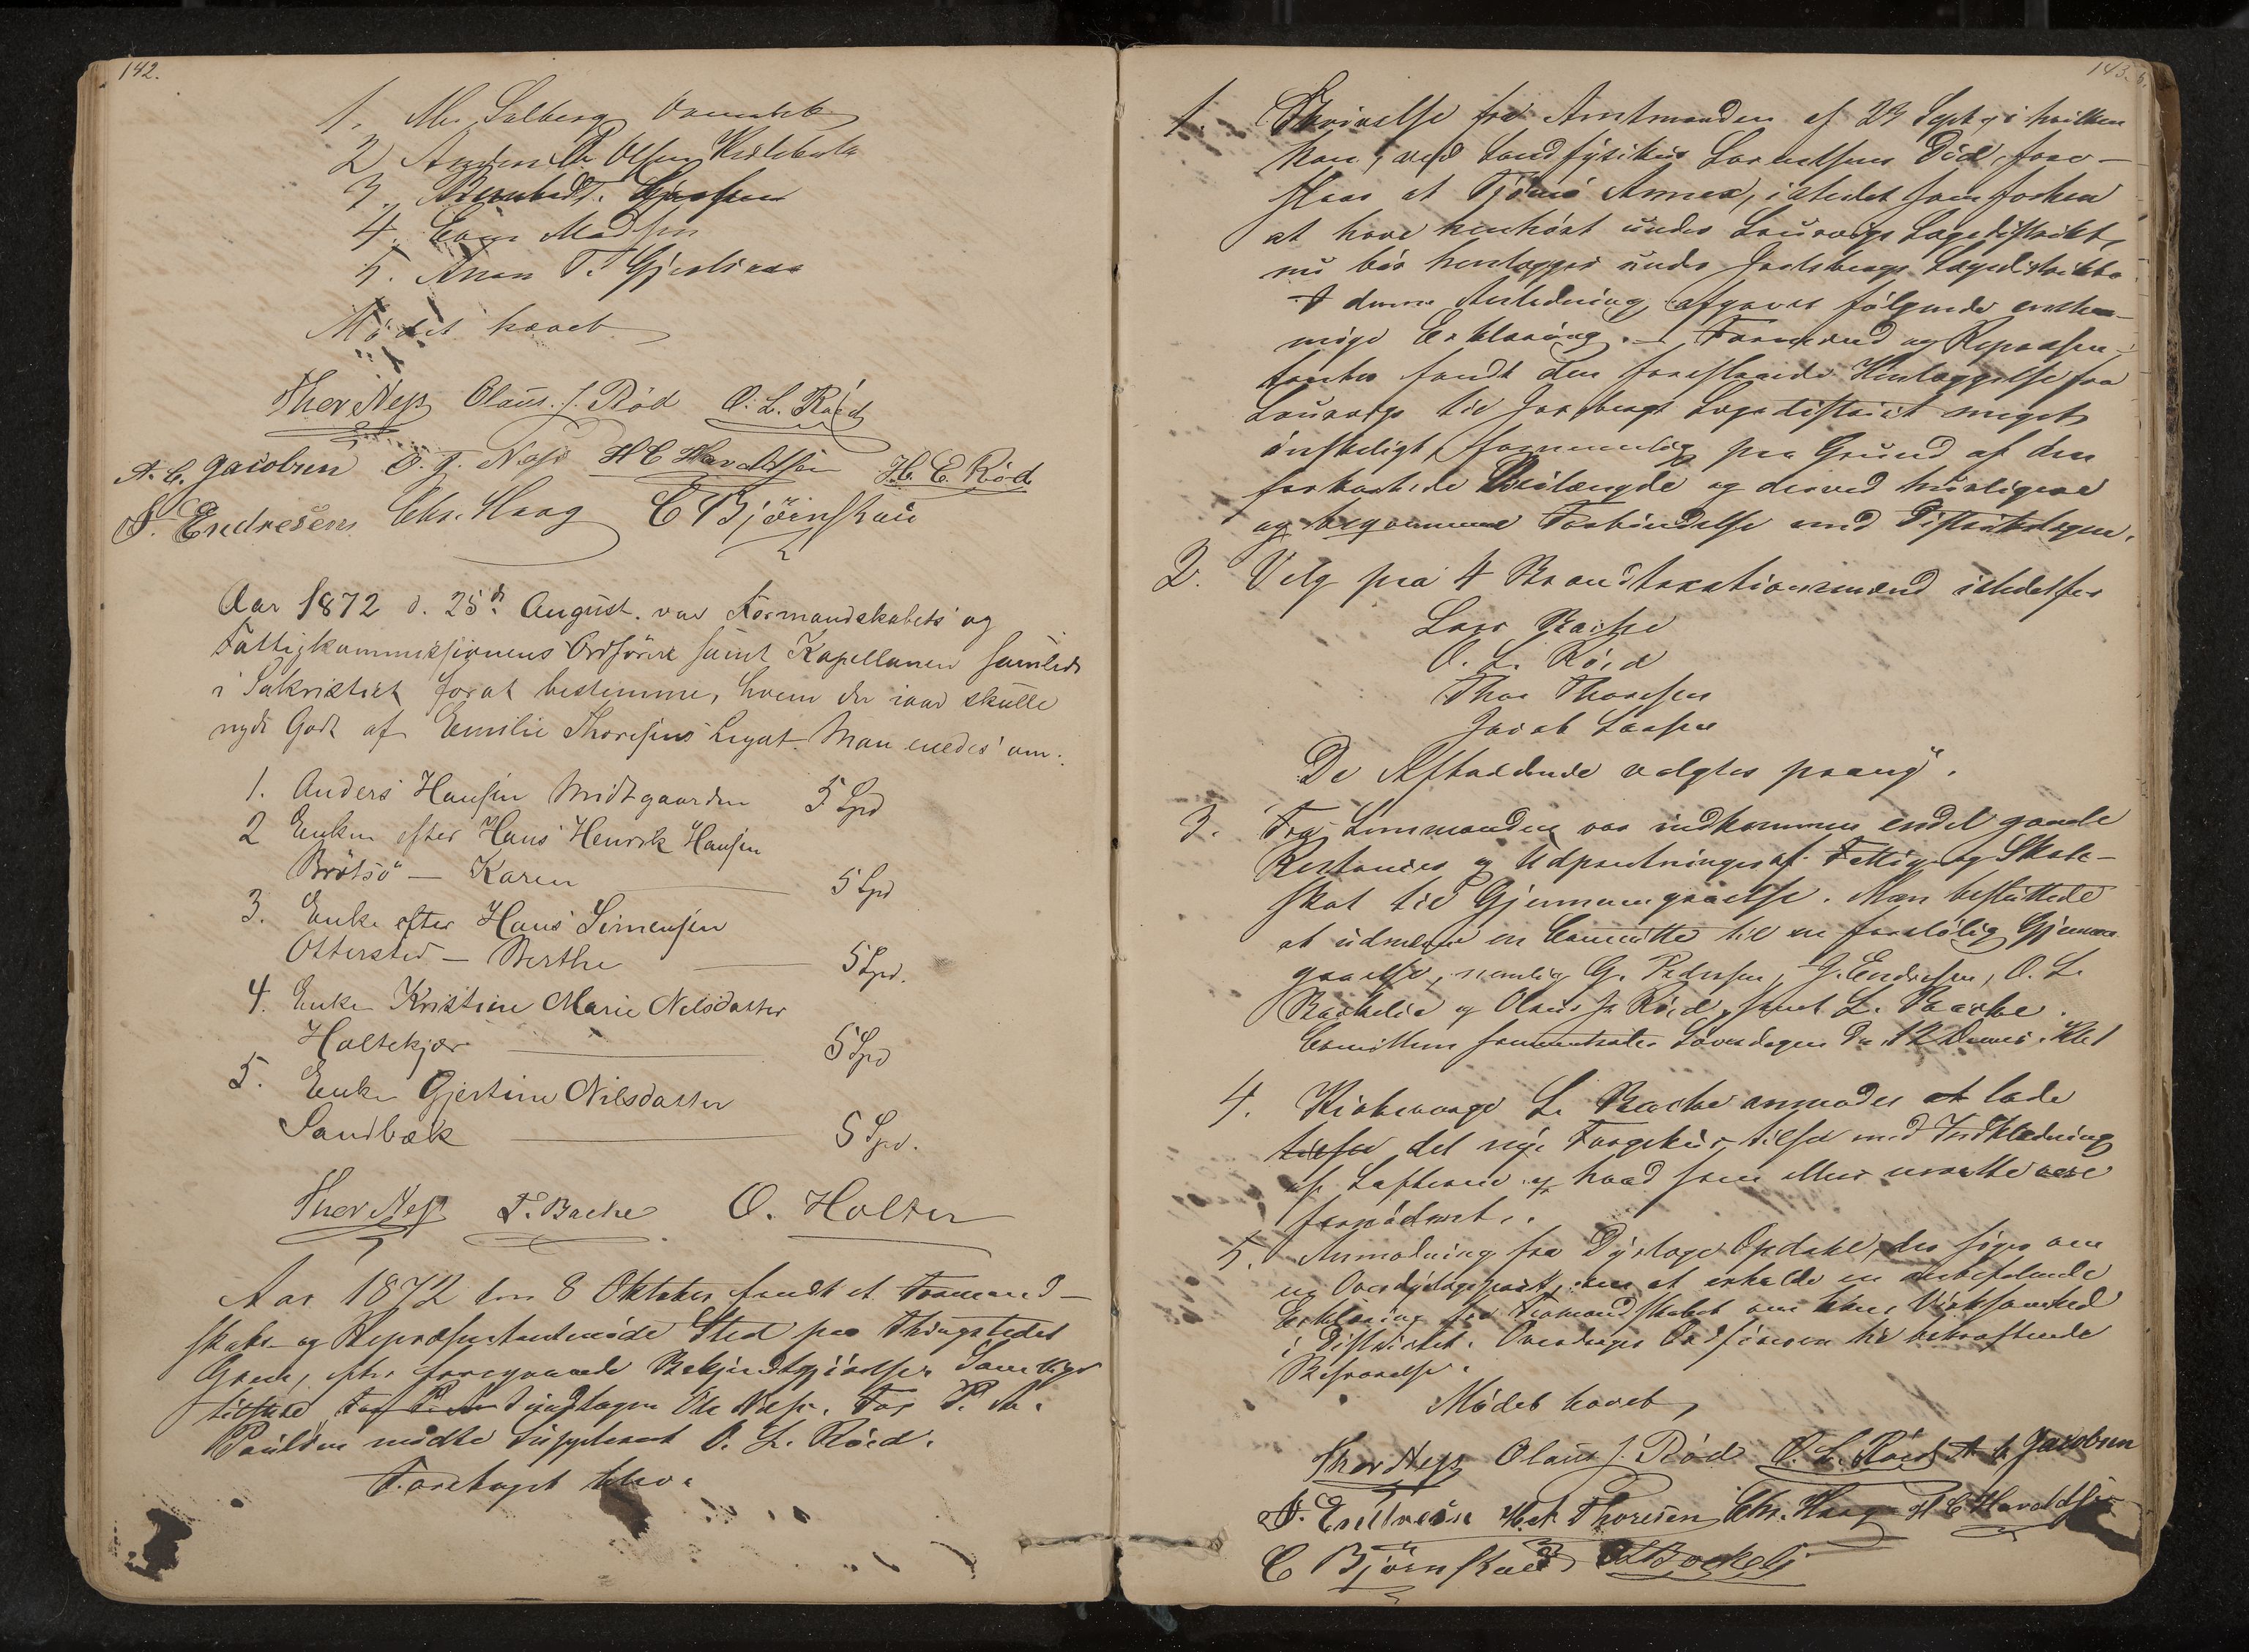 142.
1. Mr. Solberg
2 Anders Olsen
3.
4. Madsen
5. T. Gjertsen
Mödet hævet
Thor Næss Olaus J. Röd O. L. Röed
A. C. Jacobsen O. T. Næss H C Haraldsen H. E. Röd
J. Endresen Chr. Haag C Björnskau
Aar 1872 d. 25de August var Formandskabets og
Fattigkommissionens Ordförere samt Kapellanen samlede
i Sakristiet forat bestemme, hvem der iaar skulle
nyde Godt af Emilie Thoresens Legat. Man enedes om:
1. Anders Hansen Midtgaarden 5 Spd
2 Enken efter Hans Henrik Hansen
Brötsö — Karen 5 Spd
3. Enke efter Hans Simensen
Ottersted — Berthe 5 Spd.
4. Enke Kristine Marie Nilsdatter
Holtekjær 5 Spd
5. Enke Gjertine Nilsdatter
Sandbæk 5 Spd.
Thor Næss L. Bache O. Holter
Aar 1872 den 8 Oktober fandt et Formand-
skabs- og Repræsentantmöde Sted paa Thingstedet
Grean, efter foregaaende Bekjendtgjörelse. Samtlige
tilstede Ole Næss. For P. A.
Paulsen mödte Suppleant O. L. Röed.
Foretaget blev.
143.
1. Skrivelse fra Amtmanden af 29 Sept, i hvilken
han, ved Landfysikus Lorentzens Död, fore-
slaar at Tjömö Annex, istedet som forhen
at have henhört under Laurvigs Lægedistrikt,
nu bör henlægges under Jarlsbergs Lægedistrikt.
I denne Anledning afgaves fölgende enstem-
mige Erklæring. — Formænd og Repræsen-
tanter fandt den foreslaaede Henlæggelse fra
Laurvigs til Jarlsbergs Lægedistrict meget
önskeligt, fornemmelig paa Grund af den
forkortede Veilængde og derved hurtigere
og beqvemmere Forbindelse med Distriktslægen.
2. Valg paa 4 Brandtaxationsmænd istedetfor
Lars Bache
O. L. Röed
Thor Thoresen
Jacob Larsen
De Aftrædende valgtes paany.
3. Fra Lensmanden var indkommen endel gamle
Restancer og Udpantninger af Fattig og Skole-
skat til Gjennemgaaelse. Man besluttede
at udnævne en Comitte til en foreløbig Gjennem-
gaaelse, nemlig G. Pedersen, J. Endresen, O. L.
Bækkelie og Olaus J. Röed, samt L. Bache.
Comitteen sammentræder Löverdagen d. 12 Dennes Kl. 1
4. Kirkeværge L. Bache anmodes at lade
det nye Fangehus tilse med Indklædning
af Lofterne og hvad som ellers maatte være
fornödent.
5. Anmodning fra Dyrlæge Opdahl, der söger om
en Overdyrlægepost, om at erholde en anbefalende
Erklæring fra Formandskabet om hans Virksomhed
i Distriktet. Overdrages Ordföreren til bekræftende
Besvarelse.
Mödet hævet,
Thor Næss Olaus J. Röd O. L. Röed A. C. Jacobsen
J. Endresen Thoresen Chr. Haag H C Haraldsen
C Björnskau